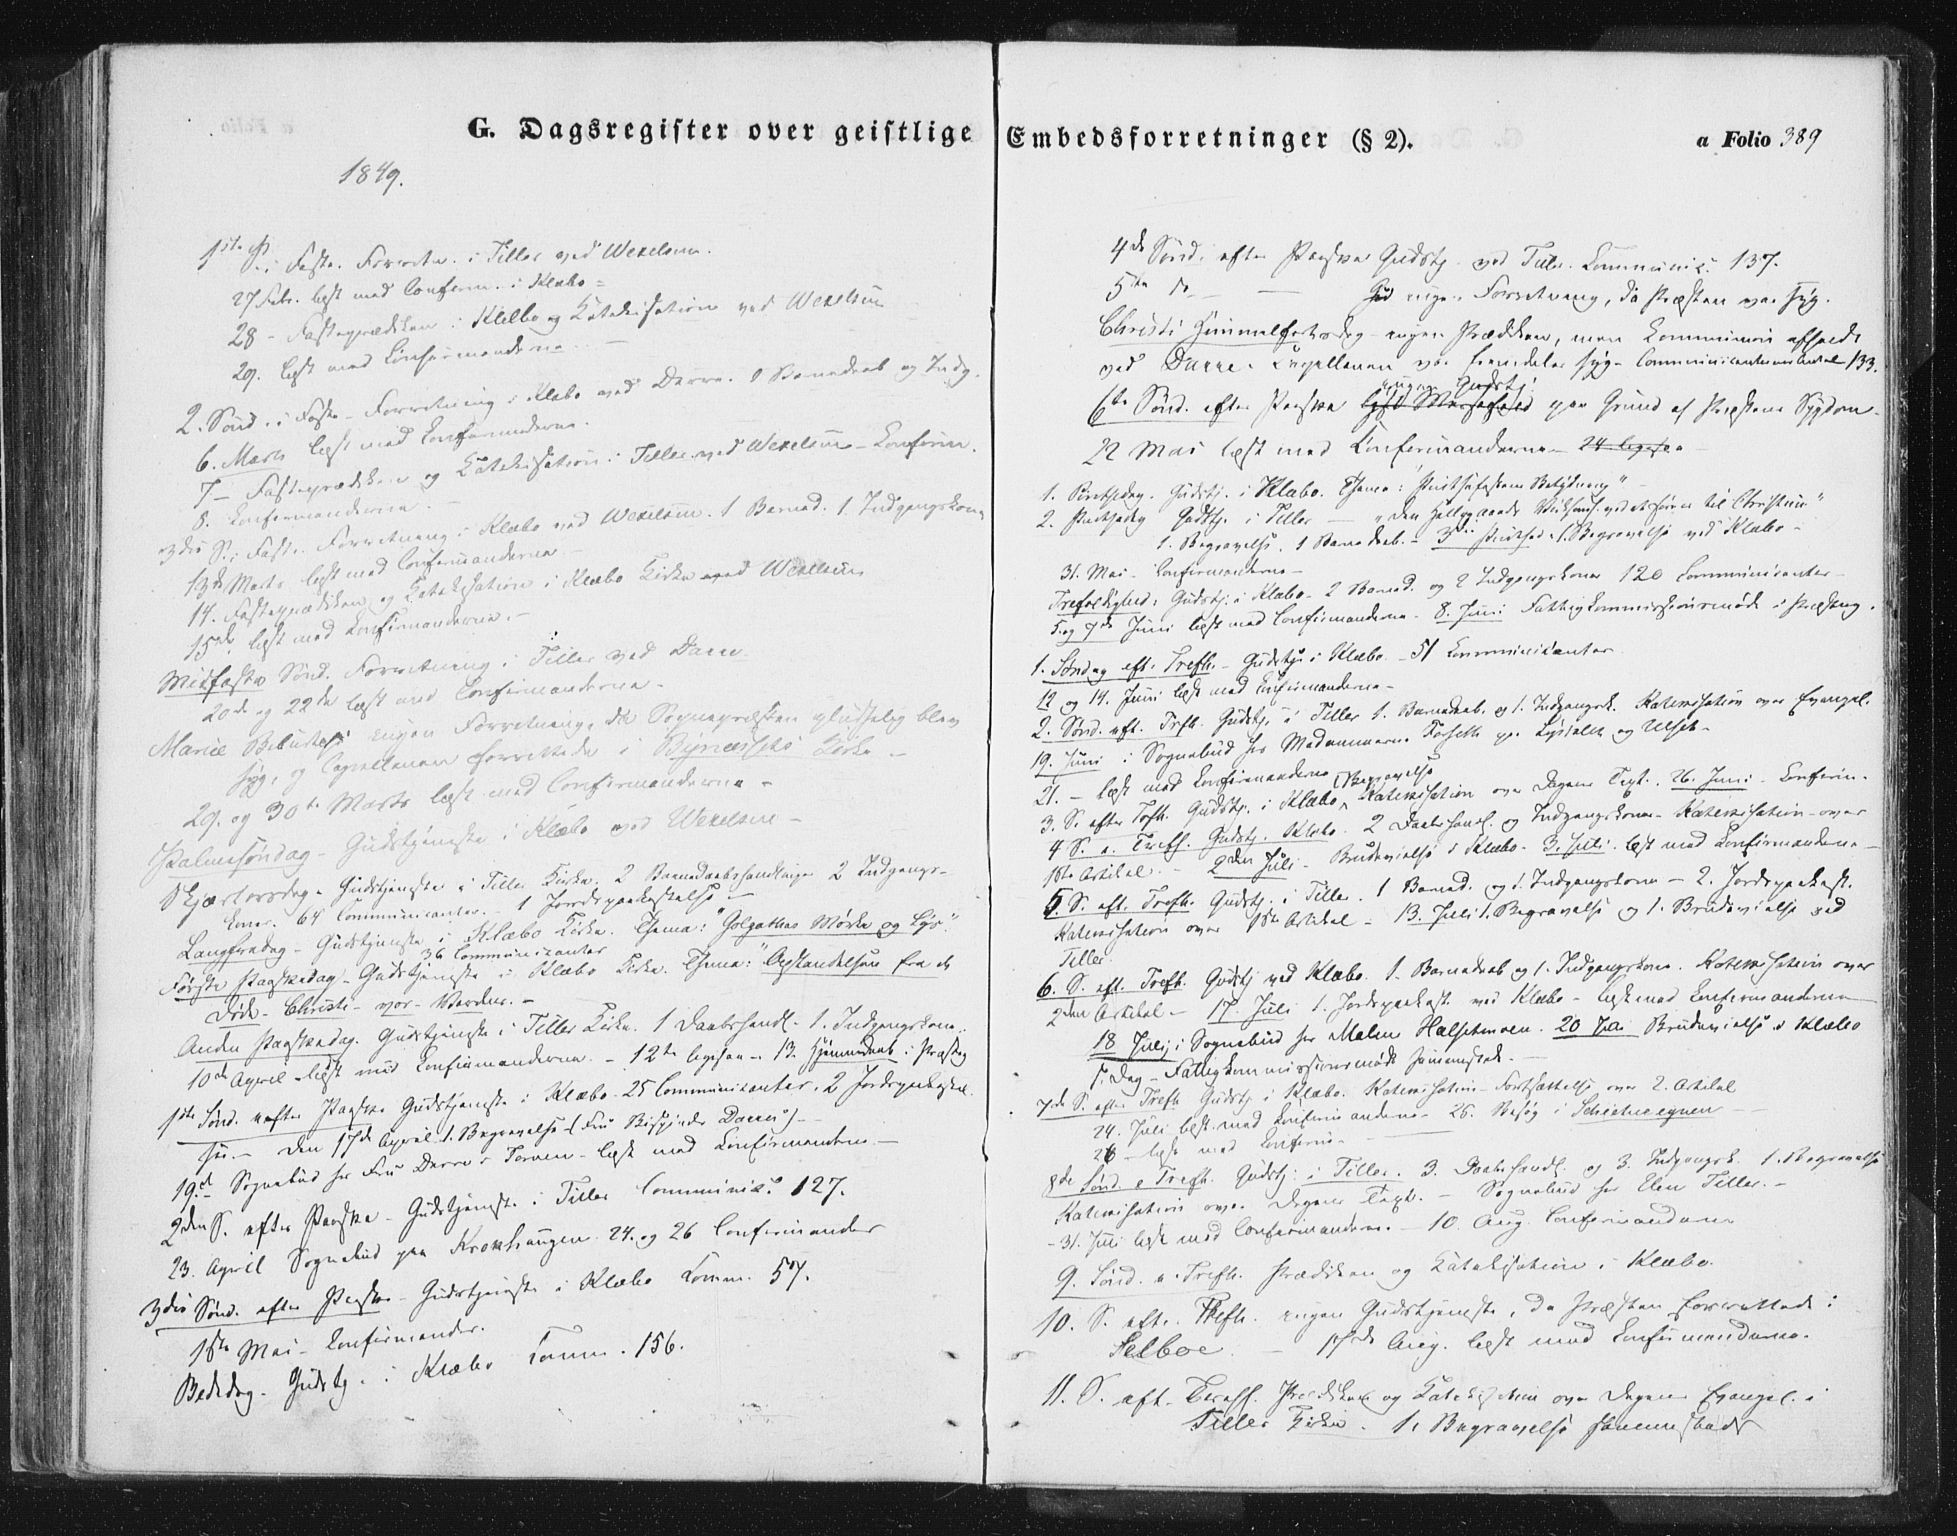 G. Dagsregister over geistlige Embedsforretninger (§ 2).
a Folio 389
1849.
1ste S. i Faste. Forretn. i Tiller ved Wexelsen.
27 Febr. læst med Conferm. i Klæbo
28 - Fasteprædiken i Klæbo og Katekisation ved Wexelsen
29. læst med Confirmanderne
2. Sønd. i Faste - Forretning i Klæbo ved Darre. Barnedaab og Indg.
6. Marts læst med Confirmanderne.
7 - Fasteprædiken og Katekisation i Tiller ved Wexelsen - Confirm.
8. Confirmanderne.
3die S. i Faste. Forretning i Klæbo ved Wexelsen. 1 Barned. 1 Indgangskone
13de Marts læst med Confirmanderne
14. Fasteprædiken og Katekisation i Klæbo Kirke ved Wexelsen
15de læst med Confirmanderne. -
Midfaste Sønd. Forretning i Tiller ved Darre
20de og 22de læst med Confirmanderne -
Mariæ Bebudelse ingen Forretning, da Sognepræsten pludselig blev
syg, og Capellanen forrettede i Bynæssets Kirke -
29. og 30te Marts læst med Confirmanderne -
Palmesøndag - Gudstjeneste i Klæbo ved Wexelsen -
Skjærtorsdag - Gudstjeneste i Tiller Kirke. 2 Barnedaabshandlinger 2 Indgangs-
koner. 64 Communicanter. - 1 Jordspaakastelse -
Langfredag - Gudstjeneste i Klæbo Kirke. Thema: "Golgathas Mørke og Lys".
36 Communicanter
Første Paaskedag - Gudstjeneste i Klæbo Kirke. Thema: "Opstandelsen fra de
Døde - Christi - vor - Verdens. -
Anden Paaskedag. Gudstjeneste i Tiller Kirke. 1 Daabshandl. 1. Indgangskone.
10de April læst med Confirmanderne. - 12te ligesaa - 13. Hjemmedaab i Præsteg
1ste Sønd. efter Paaske Gudstjeneste i Klæbo. 25 Communicanter. 2 Jordspaakastel
ser. - Den 17de April 1. Begravelse (Fru Bispinde Darres) -
19de Sognebud hos Fru Darre - læst med Confirmanderne -
2den S. efter Paaske - Gudstjeneste i Tiller Communic. 127.
23. April Sognebud paa Krokhaugen. 24. og 26 Confirmander
3die Sønd. efter Paaske - Gudstjeneste i Klæbo Comm. 57.
1ste Mai - Confirmander.
Bededag - Gudstj. i Klæbo Comm. 156.
4de Sønd. efter Paaske Gudstj. ved Communic. 137.
5te do - ingen Forretning, da Præsten var syg.
Christi Himmelfartsdag - ingen Prædiken, men Communion afholdt
ved Darre. Capellanen var fremdeles syg - Communicanternes Antal 133.
ingen Gudstj.
6te Sønd. efter Paaske paa Grund af Præstens Sygdom -
22 Mai læst med Confirmanderne - 24 ligesaa
1. Pintsedag. Gudstj. i Klæbo. Thema: "Pintsefestens Betydning"
2. Pintsedag Gudstj. i Tiller - "Den Hellig aands Virksomh. ved at føre til Christum"
1. Begravelse. 1 Barnedaab. - 3die Pintsed. 1. Begravelse ved Klæbo -
31. Mai - Confirmanderne -
Trefoldighed: Gudstj. i Klæbo - 2 Barned. og 2 Indgangskoner 120 Communicanter -
5. og 7de Juni læst med Confirmanderne - 8. Juni Fattigkommissionsmøde i Præsteg.
1. Søndag eft. Trefh. - Gudstj. i Klæbo - 51 Communicanter
12 og 14. Juni læst med Confirmanderne -
2. Sønd. eft. Trefh. Gudstj. i Tiller 1. Barnedaab, og 1. Indgangsk. Katekisation over Evangel.
19. Juni i Sognebud hos Madammerne
21. - læst med Confirmanderne Begravelse
3. S. efter Trefh. Gudstj. i Klæbo, Katekisation over Dagens Text. 26. Juni - Confirm.
4 S. e. Trefh. Gudstj. Klæbo. 2 Daabshandl. og Indgangskoner - Katekisation over
1ste Artikel. - 2den Juli - Brudevielse i Klæbo - 3. Juli læst med Confirmanderne -
5. S. eft. Trefh. Gudstj. i Tiller. 1 Barned. og 1. Indgangskone - 2. Jordspaakast.
Katekisation over 1ste Artikel - 13. Juli 1. Begravelse og 1. Brudevielse ved
Tiller.
6. S. eft. Trefh. Gudstj. ved Klæbo. 1. Barnedaab og 1. Indgangskone. Katekisation over
2den Artikel - 17. Juli 1. Jordspaakast. ved Klæbo - læst med Confirmanderne
18 Juli i Sognebud hos Malene Halsetmoen. 20 Juli Brudevielse i Klæbo
s. Dag - Fattigkommissionsmøde sammesteds. -
7de S. efter Trefh Gudstj. i Klæbo. Katekisation - Fortsættelse over 2. Artikel
24. Juli læst med Confirmanderne - 25. Besøg i
26 - læst med Confirm. -
8de Sønd. e Trefh. Gudstj. i Tiller. 3. Daabshandl. og 3. Indgangsk. 1. Begravelse
Katekisation over Dagens Text. - Sognebud hos Elen Tiller. -
- 31. Juli læst med Confirmanderne. - 10. Aug. Confirmanderne
9. Sønd. e. Trefh. Prædiken og Katekisation i Klæbo.
10. S. eft. Trefh. ingen Gudstjeneste, da Præsten forrettede i
Selboe. - 17de Aug. læst med Confirmanderne.
11. S. eft. Trefh. Prædiken og Katekisation over Dagens Evangel. i
Tiller Kirke. 1. Begravelse sammesteds